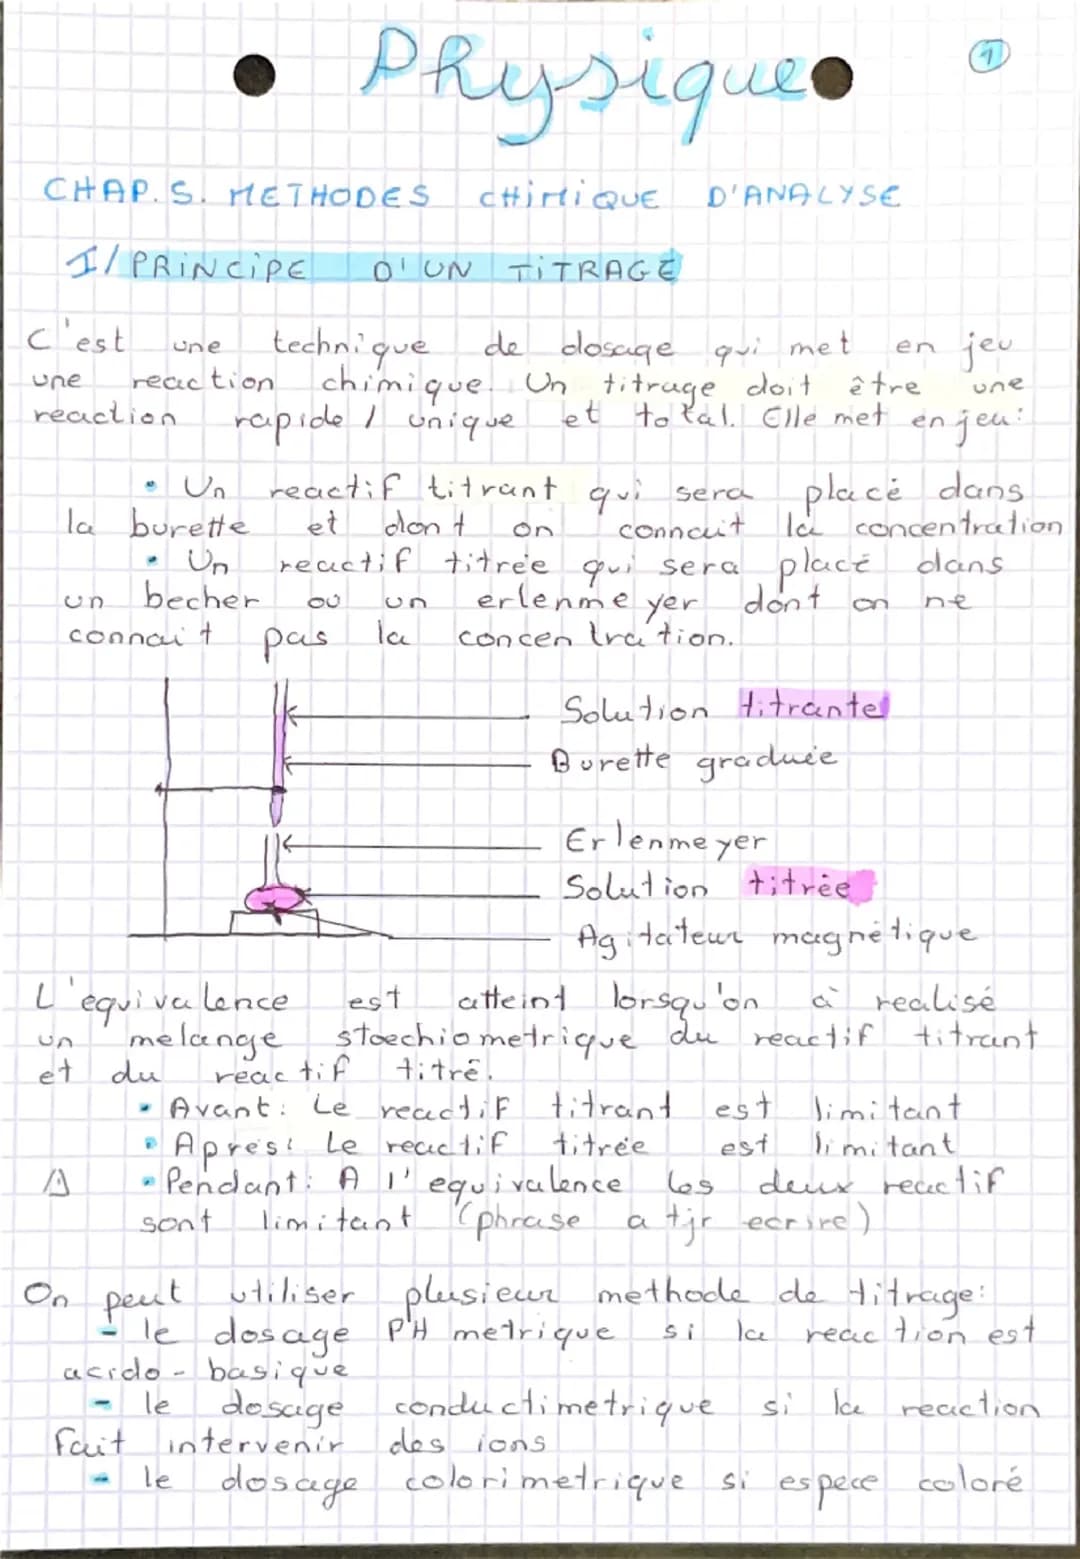 Physique
1
CHAP.5. METHODES CHIMIQUE D'ANALYSE
I/ PRINCIPE D'UN TITRAGE
C'est une technique de dosage qui met en jeu
une reaction chimique. Un titrage doit être une
reaction rapide / unique et total. Elle met en jeu:
• Un reactif titrant qui sera placé dans
la burette et dont on connait la concentration
• Un reactif titrée qui sera placé dans
un becher ou un erlenmeyer dont on ne
connait pas la concentration.
Solution titrante
Burette graduée
Erlenmeyer
Solution titrée
Agitateur magnétique
L'equivalence est atteint lorsqu'on à realisé
un melange stoechiometrique du reactif titrant
et du reactif titré.
• Avant: Le reactif titrant est limitant
• Apres: Le reactif titrée est limitant
• Pendant: A l'equivalence les deux reactif
sont limitant (phrase a tjr ecrire)
On peut utiliser plusieur methode de titrage:
- le dosage PH metrique si la reaction est
acido-basique
- le dosage conductimetrique si la reaction
fait intervenir des ions
- le dosage colorimetrique si espece coloré